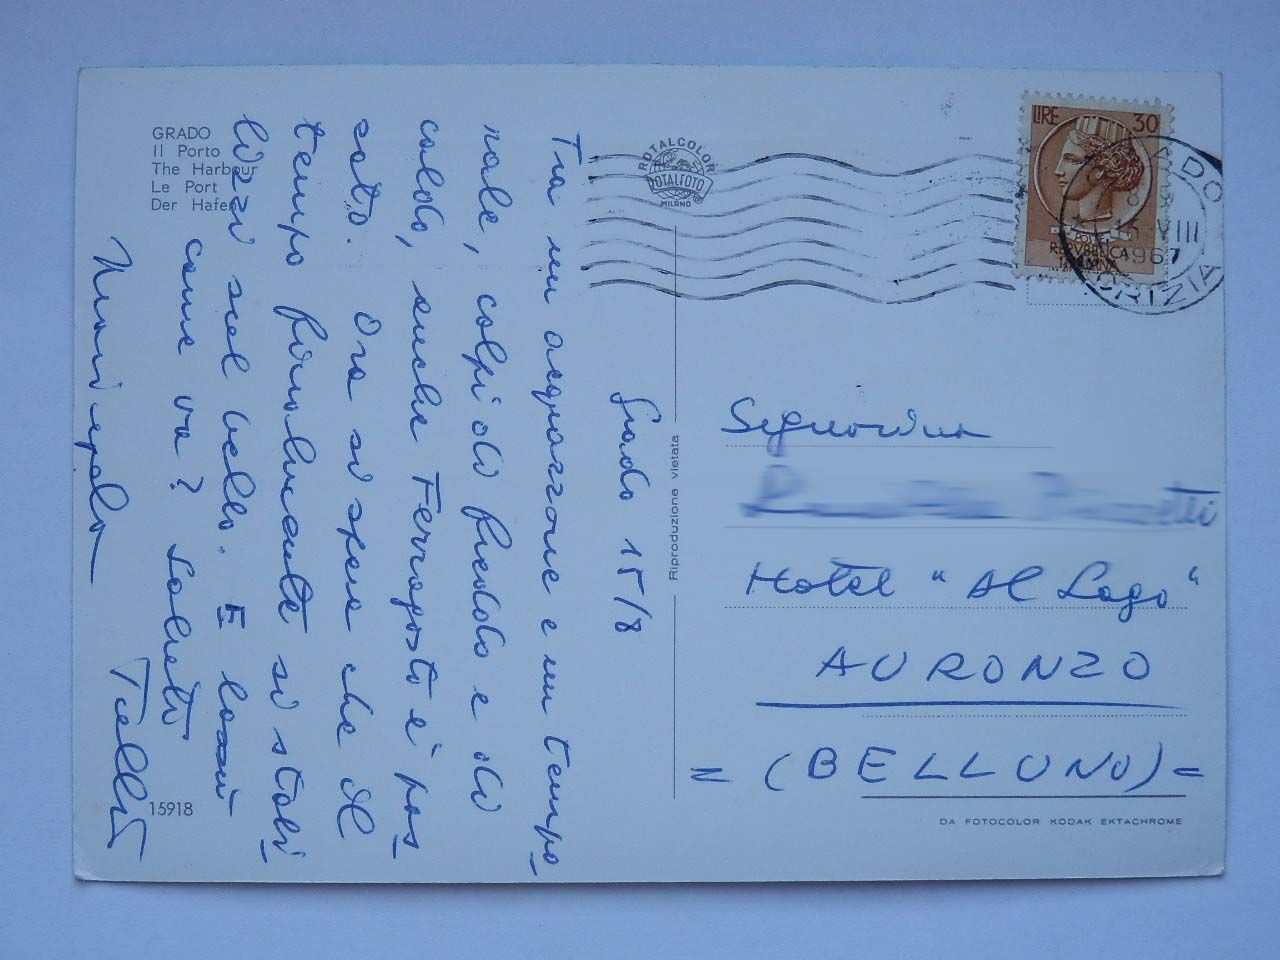 GRADO
Il Porto
The Harbour
Le Port
Der Hafen
Grado 15/8
Tra un acquazzone e un tempo-
rale, colpi di freddo e di
caldo, anche Ferragosto è pas-
sato. Ora si spera che il
tempo finalmente si stabi-
lizzi sul bello. E lassù
come va? Saluti
Mariapola
15918
ROTALCOLOR
ROTALFOTO
MILANO
Riproduzione vietata
LIRE 30
POSTE
REPVBBLICA
ITALIANA
GRADO
GORIZIA
VIII
1967
Signorina
Hotel "Al Lago"
AURONZO
= (BELLUNO) =
DA FOTOCOLOR KODAK EKTACHROME